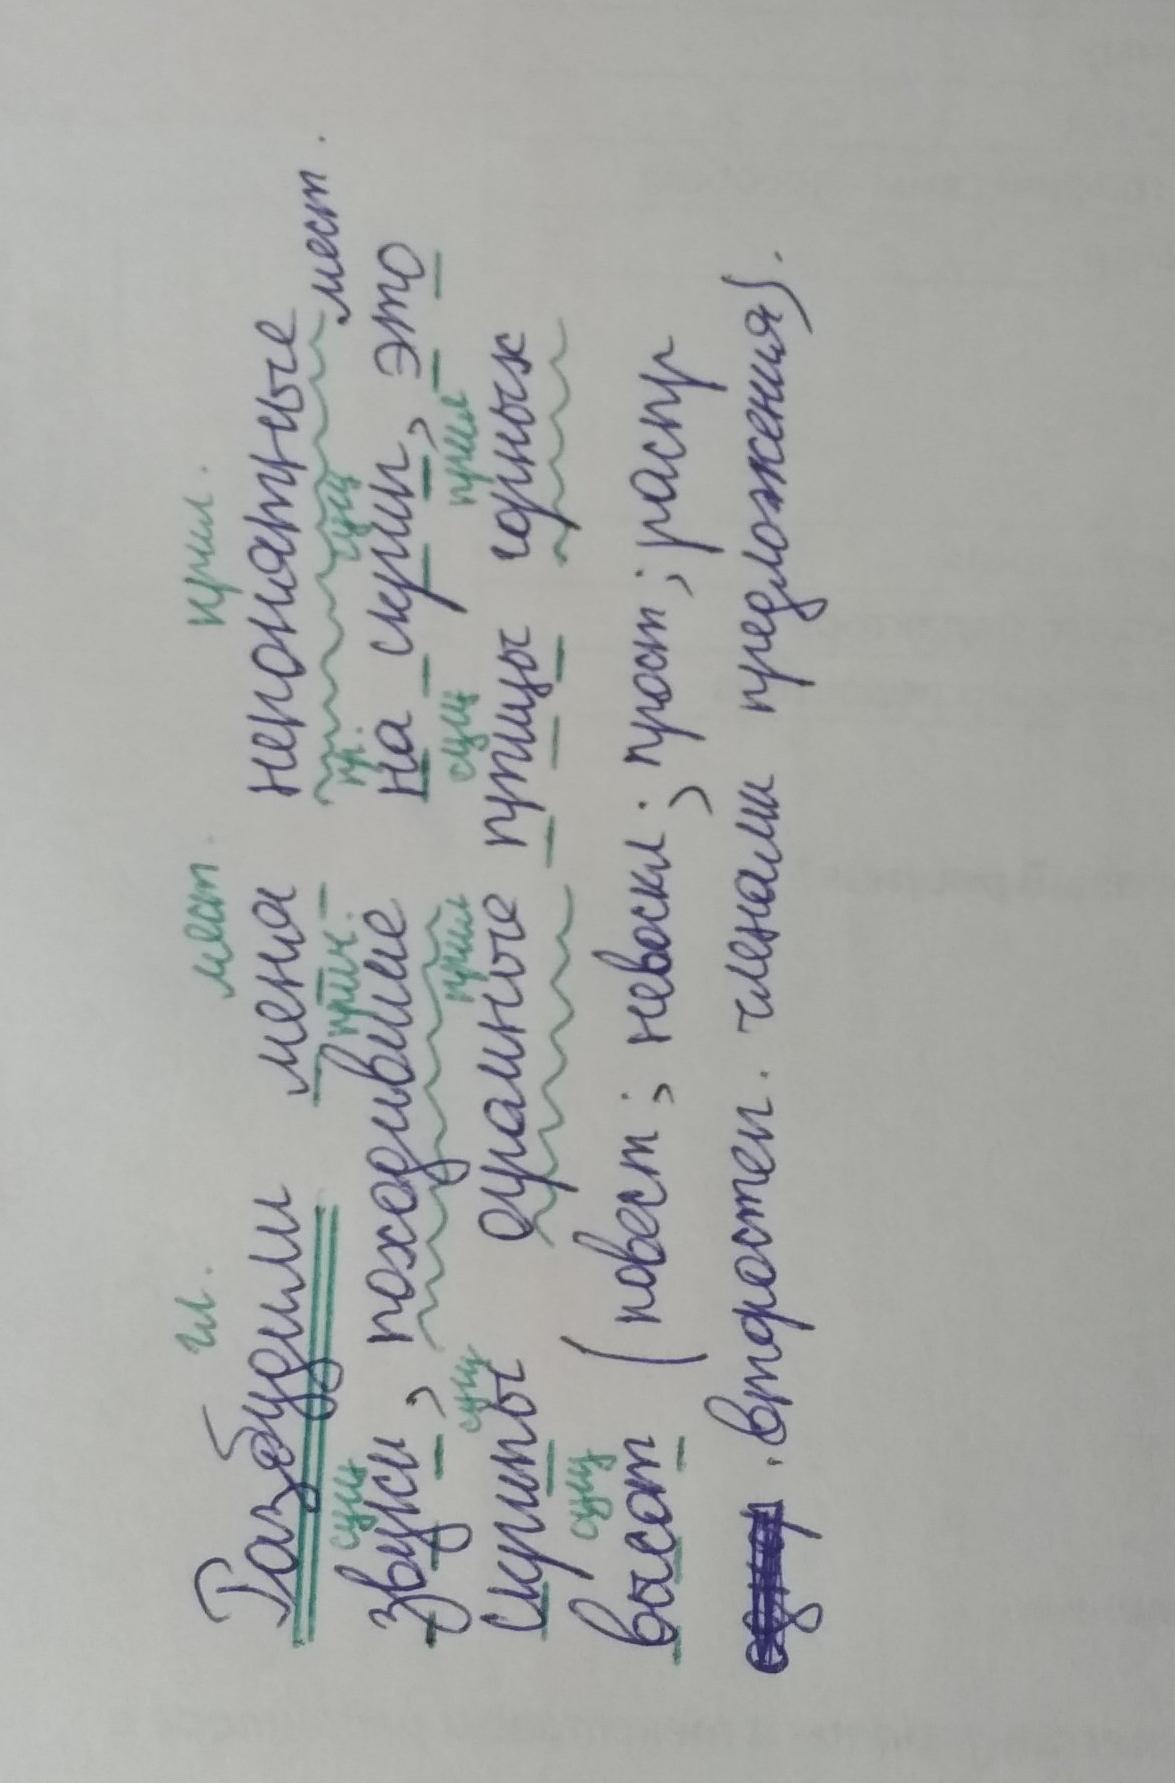 гл. мест. прил.
Разбудили меня непонятные
сущ прич. пр. сущ мест.
звуки, походившие на скрип, это
сущ прил сущ прил
скрипы птицы горных
сущ
высот (повест; невоскл.; прост; распр
второстеп. членами предложения).